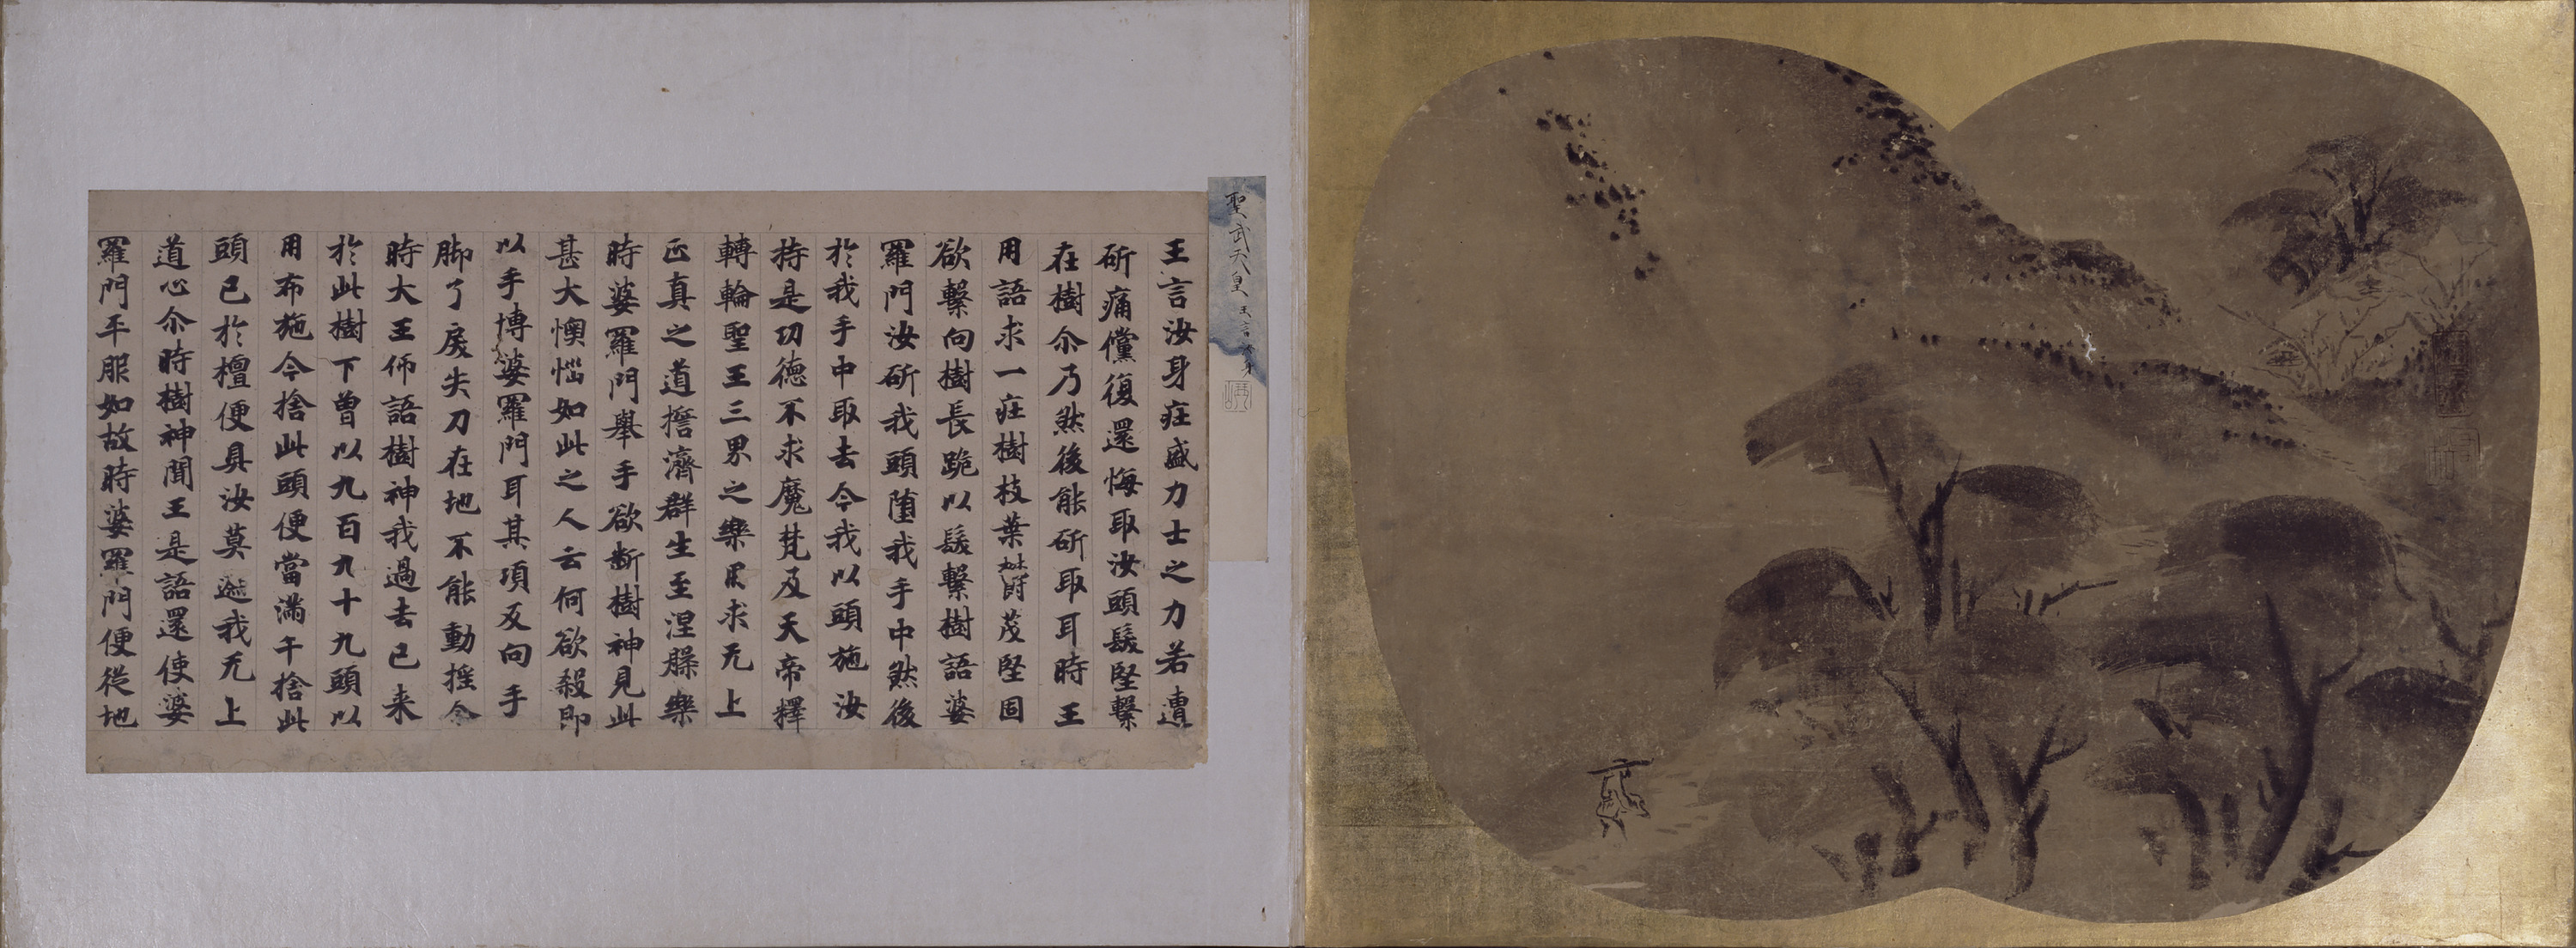 聖武天皇 王言汝身
王言汝身在盛力士之力若遭
斫痛儻復還悔取汝頭髮堅繫
在樹尒乃然後能斫取耳時王
用語求一在樹枝葉欝茂堅固
欲繫向樹長跪以髮繫樹語婆
羅門汝斫我頭墮我手中然後
於我手中取去今我以頭施汝
持是功德不求魔梵及天帝釋
轉輪聖王三界之樂用求无上
正真之道擔濟群生至涅槃樂
時婆羅門舉手欲斫樹神見此
甚大懊惱如此之人云何欲殺即
以手博婆羅門耳其項反向手
脚了戾失刀在地不能動搖今
時大王俻語樹神我過去已来
於此樹下曾以九百九十九頭以
用布施今捨此頭便當滿千捨此
頭已於檀便具汝莫遮我无上
道心尒時樹神聞王是語還使婆
羅門平服如故時婆羅門便從地